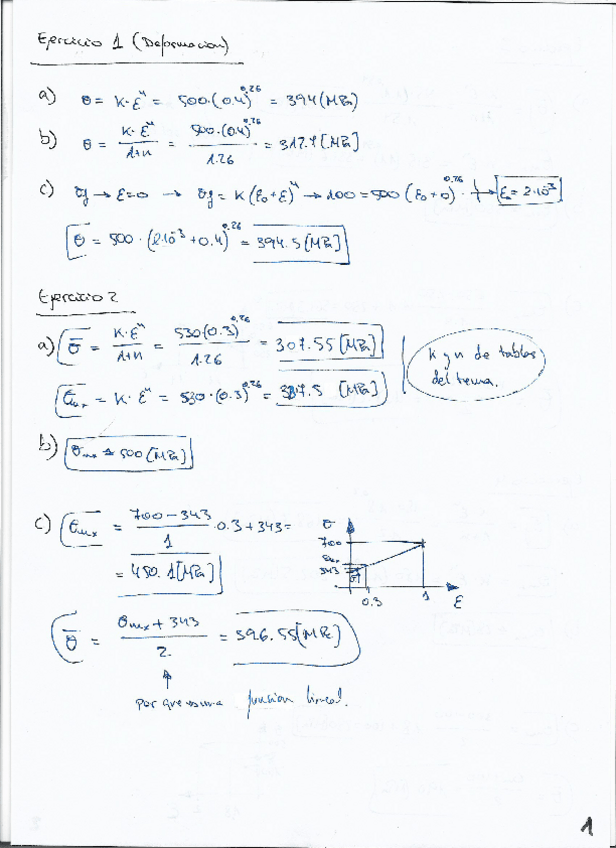 Ejercicio 1 (Deformacion)
a) σ = K·ε^n = 500·(0.4)^0.26 = 394 (MPa)
b) σ = K·ε^n / 1+n = 500·(0.4)^0.26 / 1.26 = 312.7 [MPa]
c) σf → ε=0 → σf = K(ε0+ε)^n → 100 = 500 (ε0+0)^0.26 → ε0 = 2·10^-3
σ = 500·(2·10^-3+0.4)^0.26 = 394.5 [MPa]
Ejercicio 2
a) σ̅ = K·ε^n / 1+n = 530·(0.3)^0.26 / 1.26 = 307.55 [MPa]
K y n de tablas
del tema.
σmax = K·ε^n = 530·(0.3)^0.26 = 387.5 [MPa]
b) σmax = 500 [MPa]
c) σmax = 700-343 / 1 ·0.3+343 =
= 450.1 [MPa]
σ
700
σmax
343
σ̅
0.3
1
ε
σ̅ = σmax + 343 / 2 = 396.55 [MPa]
porque es una funcion lineal.
1